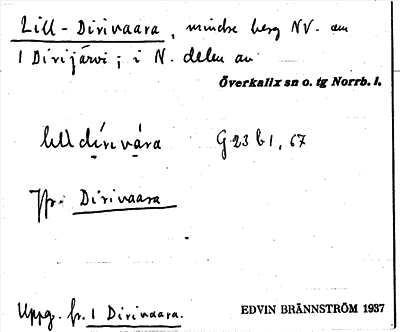 Lill-Dirivaara, mindre berg NV. om
1 Dirijärvi; i N. delen av
Överkalix sn o. tg Norrb. l.
lilldírivára G 23 b 1, 67
Jfr. Dirivaara
Uppg. fr. 1 Dirivaara. EDVIN BRÄNNSTRÖM 1937